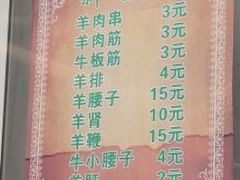 羊肉串 3元
羊肉筋 3元
牛板筋 3元
羊排 4元
羊腰子 15元
羊肾 10元
羊鞭 15元
牛小腰子 4元
2元